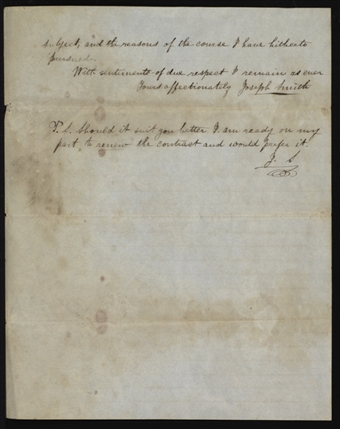 subject, and the reasons of the course I have hitherto
pursued.
With sentiments of due respect I remain as ever
Yours affectionately Joseph Smith
P. S. Should it suit you better I am ready on my
part, to renew the contract and would prefer it
J. S